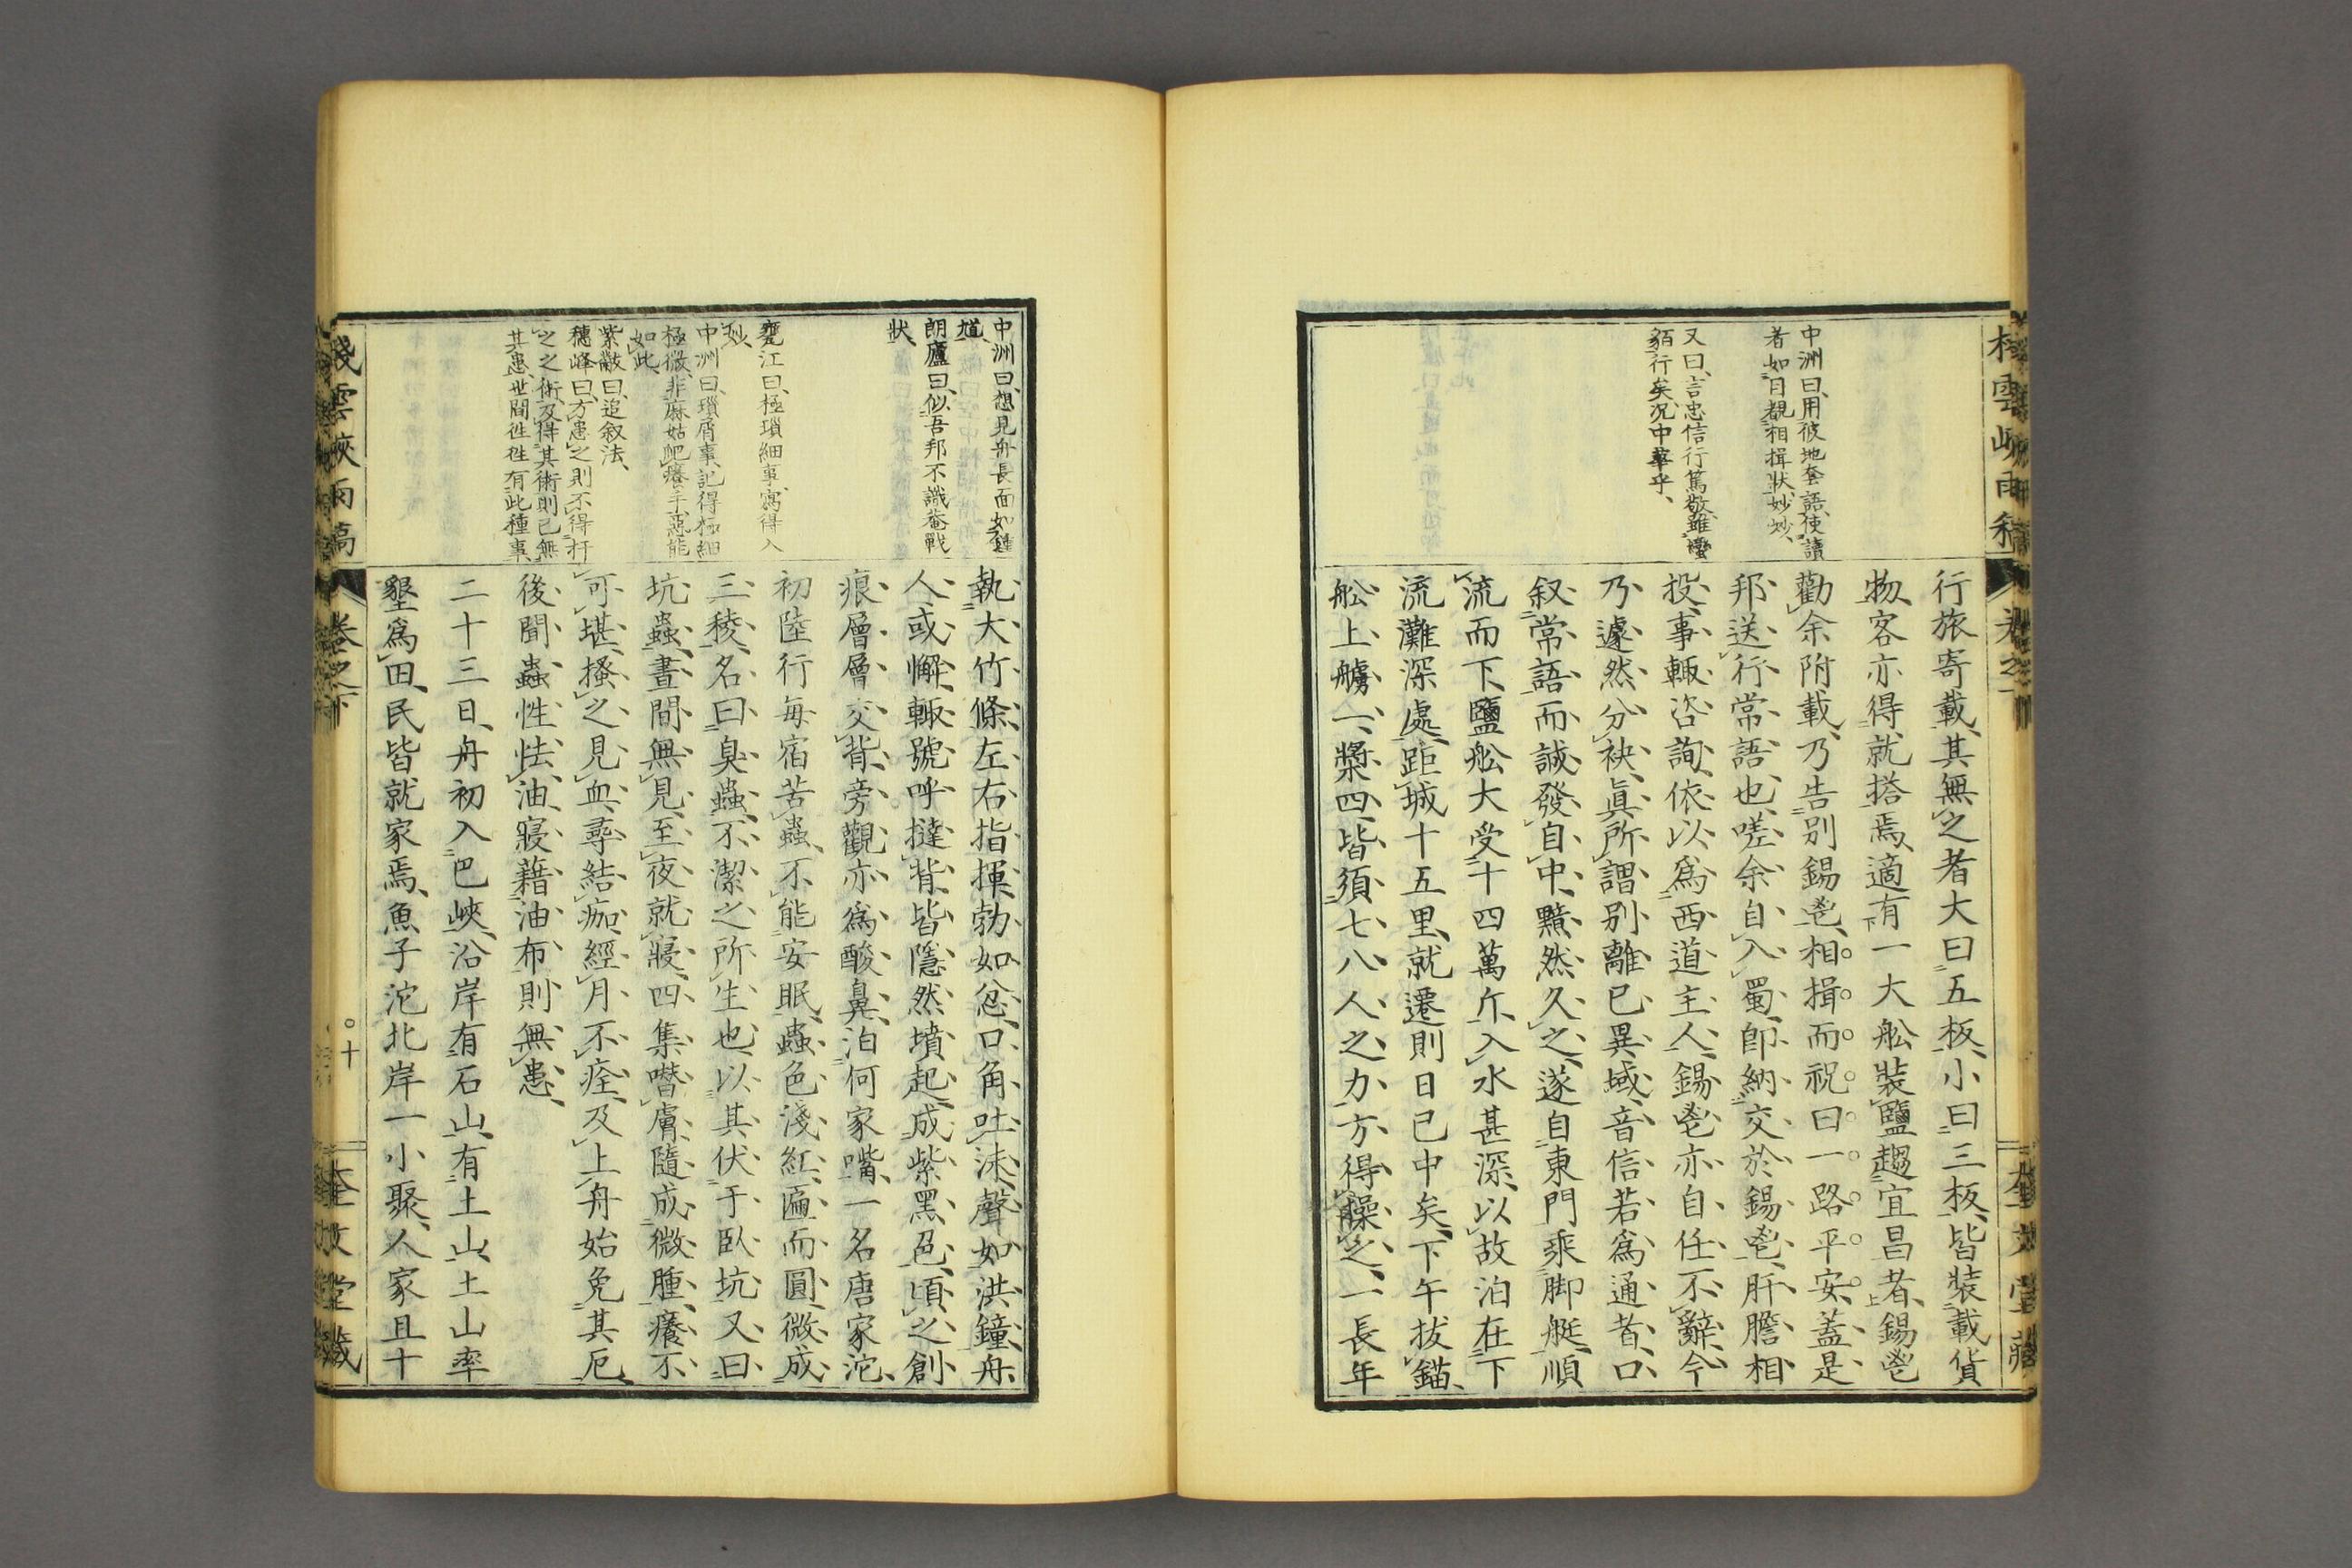 中洲曰、用彼地套語、使讀
者如目覩相揖狀、妙妙、
又曰、言忠信行篤敬、雖蠻
貊行矣、況中華乎、
行旅寄載、其無之者大曰五板、小曰三板、皆裝載貨
物、客亦得就搭焉、適有一大舩裝鹽趨宜昌者、錫鬯
勸余附載、乃告別錫鬯、相揖而祝曰一路平安、蓋是
邦送行常語也、嗟余自入蜀、卽納交於錫鬯、肝膽相
投、事輙咨詢、依以爲西道主人、錫鬯亦自任不辭、今
乃遽然分袂、眞所謂別離已異域、音信若爲通者、口
叙常語、而誠發自中、黯然久之、遂自東門乘脚艇、順
流而下、鹽舩大受十四萬斤、入水甚深、以故泊在下
流灘深處、距城十五里、就遷則日已中矣、下午拔錨、
舩上艣一、槳四、皆須七八人之力、方得操之、一長年
中洲曰、想見舟長面如鍾
馗、
朗廬曰、似吾邦不識菴戰
狀、
甕江曰、極瑣細事、寫得入
妙、
中洲曰、瑣屑事、記得極細
極微、非麻姑爬癢手、惡能
如此、
紫敝曰、追叙法、
穗峰曰、方患之則不得扞
之之術、及得其術則已無
其患、世間徃徃有此種事、
執大竹條、左右指揮、勃如忿、口角吐沫、聲如洪鐘、舟
人或懈、輙號呼撻背、皆隱然墳起、成紫黑色、頃之創
痕層層交背、旁觀亦爲酸鼻、泊何家嘴、一名唐家沱、
初陸行每宿苦蟲、不能安眠、蟲色淺紅、匾而圓、微成
三稜、名曰臭蟲、不潔之所生也、以其伏于臥坑、又曰
坑蟲、晝間無見、至夜就寢、四集噆膚、隨成微腫、癢不
可堪、搔之見血、尋結痂、經月不痊、及上舟始免其厄、
後聞蟲性怯油、寢藉油布則無患、
二十三日、舟初入巴峽、沿岸有石山、有土山、土山率
墾爲田、民皆就家焉、魚子沱北岸一小聚、人家且十
棧雲峽雨稿
卷之下
○十
奎文堂藏